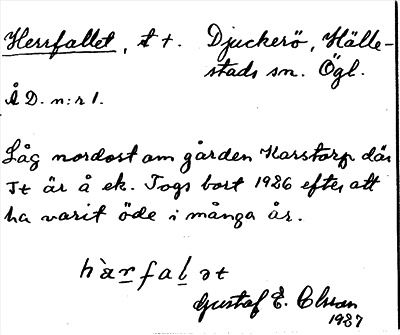 Herrfallet, t t. Djuckerö, Hälle-
stads sn. Ögl.
Å D. n:r 1.
Låg nordost om gården Karstorp där
Tt är å ek. Togs bort 1926 efter att
ha varit öde i många år.
hàrfalət
Gustaf E. Olsson
1927